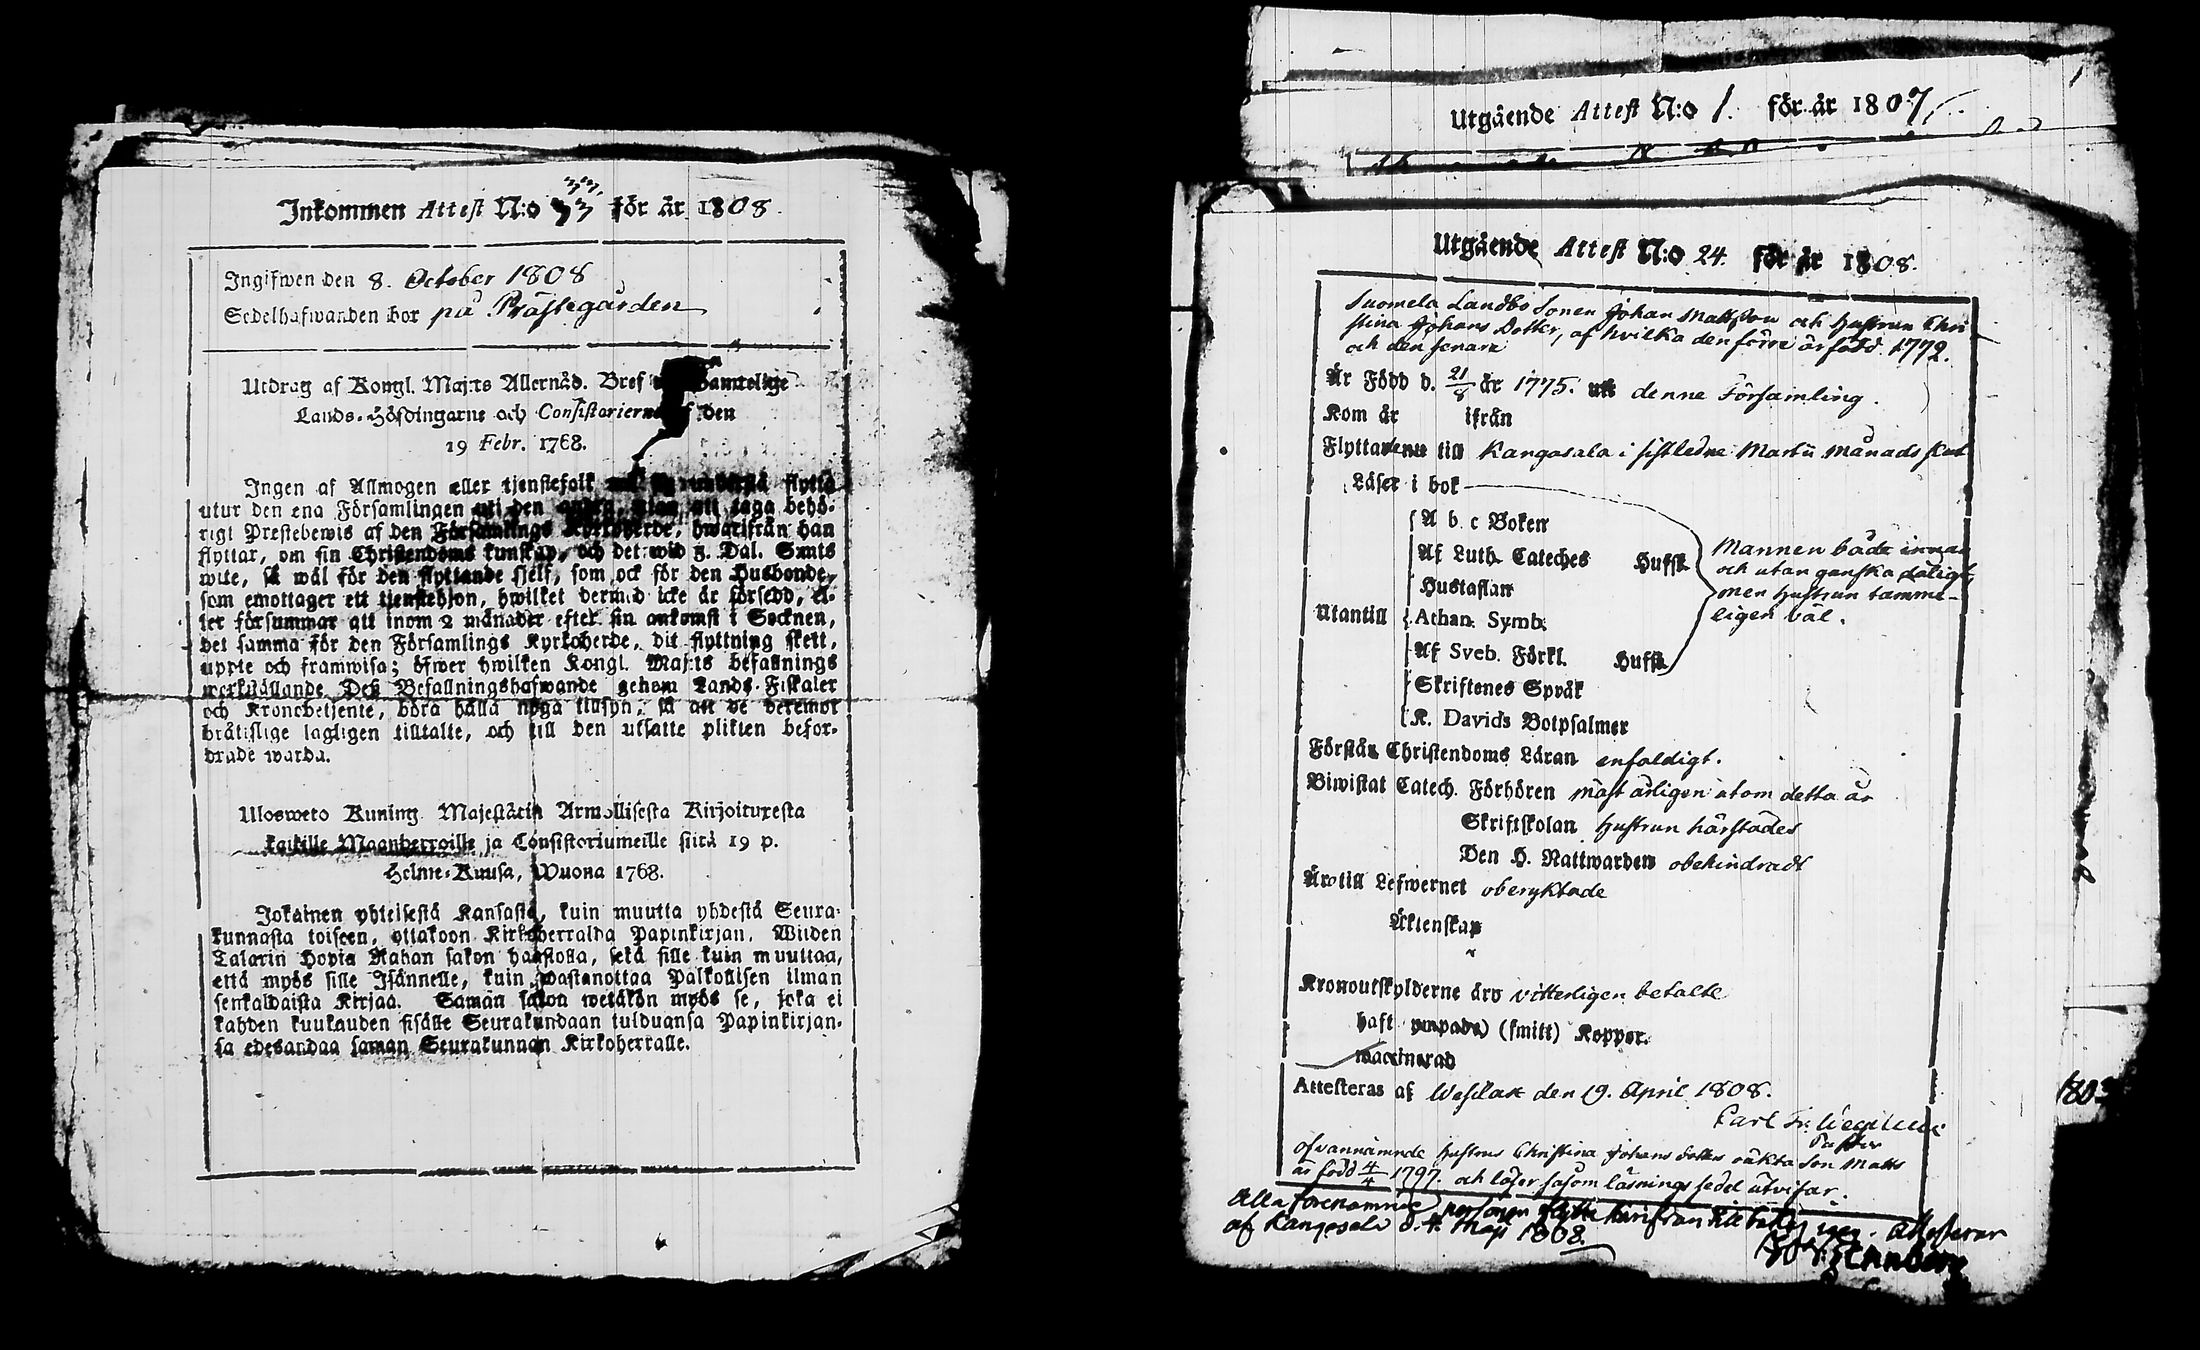 Inkommen Attest N:o 33 för år 1808.
33.
Ingifwen den 8. October 1808
Sedelhafwanden bor på Prästegården
Utdrag af Kongl. Maj:ts Allernåd. Bref Samtelige
Lands-Höfdingarne och Consistorierne af den
19 Febr. 1768.
Ingen af Allmogen eller tjenstefolk må flytta
utur den ena Församlingen uti den andra, utan att taga behö-
rigt Prestebewis af den Församlings Kyrkoherde, hwarifrån han
flyttar, om sin Christendoms kunskap, och det wid 3. Dal. S:mts
wite, så wäl för den flyttande sjelf, som ock för den Husbonde,
som emottager ett tjenstehjon, hwilket dermed icke är försedd, el-
ler försummar att inom 2 månader efter sin ankomst i Socknen,
det samma för den Församlings Kyrkoherde, dit flyttning skett,
uppte och framwisa; öfwer hwilken Kongl. Maj:ts befallnings
werkställande Deß Befallningshafwande genom Lands-Fiskaler
och Kronobetjente, böra hålla noga tillsyn, så att de deremot
bråtislige lagligen tilltalte, och till den utsatte plikten befor-
drade warda.
Ulosweto Kuning. Majestätin Armollisesta Kirjoituxesta
kaikille Maanherroille ja Consistoriumeille siitä 19 p.
Helme-Kuusa, Wuona 1768.
Jokainen yhteisestä Kansasta, kuin muutta yhdestä Seura-
kunnasta toiseen, ottakoon Kirkoherralda Papinkirjan, Wiiden
Talarin Hopia Rahan sakon haastolla, sekä sille kuin muuttaa,
että myös sille Isännelle, kuin wastanottaa Palkollisen ilman
senkaldaista Kirjaa. Saman sakon wetäkön myös se, joka ei
kahden kuukauden sisälle Seurakundaan tulduansa Papinkirjan-
sa edesandaa saman Seurakunnan Kirkoherralle.
Utgående Attest N:o 1. för år 1807.
Utgående Attest N:o 24. för år 1808.
Suomela Landbo Sonen Johan Mattsson och Hustrun Chri
stina Johans Dotter, af hvilka den förre är född 1772.
och den senare
Är Född d. 21/8 år 1775. uti denne Församling.
Kom år ifrån
Flyttande till Kangasala i sistledne Martii månads slut
Läser i bok
A b c Boken
Af Luth. Cateches Hufst.
Hustaflan
Utantill Athan. Symb.
Af Sveb. Förkl. Hufst.
Skriftenes Språk
K. Davids Botpsalmer
Mannen både innan
och utan ganska dåligt
men Hustrun tamme-
ligen väl.
Förstår Christendoms Läran enfaldigt.
Biwistat Catech. Förhören mäst årligen utom detta år
Skriftskolan Hustrun härstädes
Den H. Nattwarden obehindradt
Äro till Lefwernet oberyktade
Äktenskap
Kronoutskylderne äro vitterligen betalte
haft ympade) (smitt) Koppor.
waccinerad
Attesteras af Wesilax den 19. April 1808.
Carl Fr.
Pastor
Ofvannämnde Hustrus Christina Johans dotters oäkta Son Matts
är född 4/4 1797. och läser såsom läsnings sedel utvisar.
Alla förenämnde personer flytta härifrån tillbaka igen. Attesterar
af Kangasala d. 4. Maji 1808.
1803